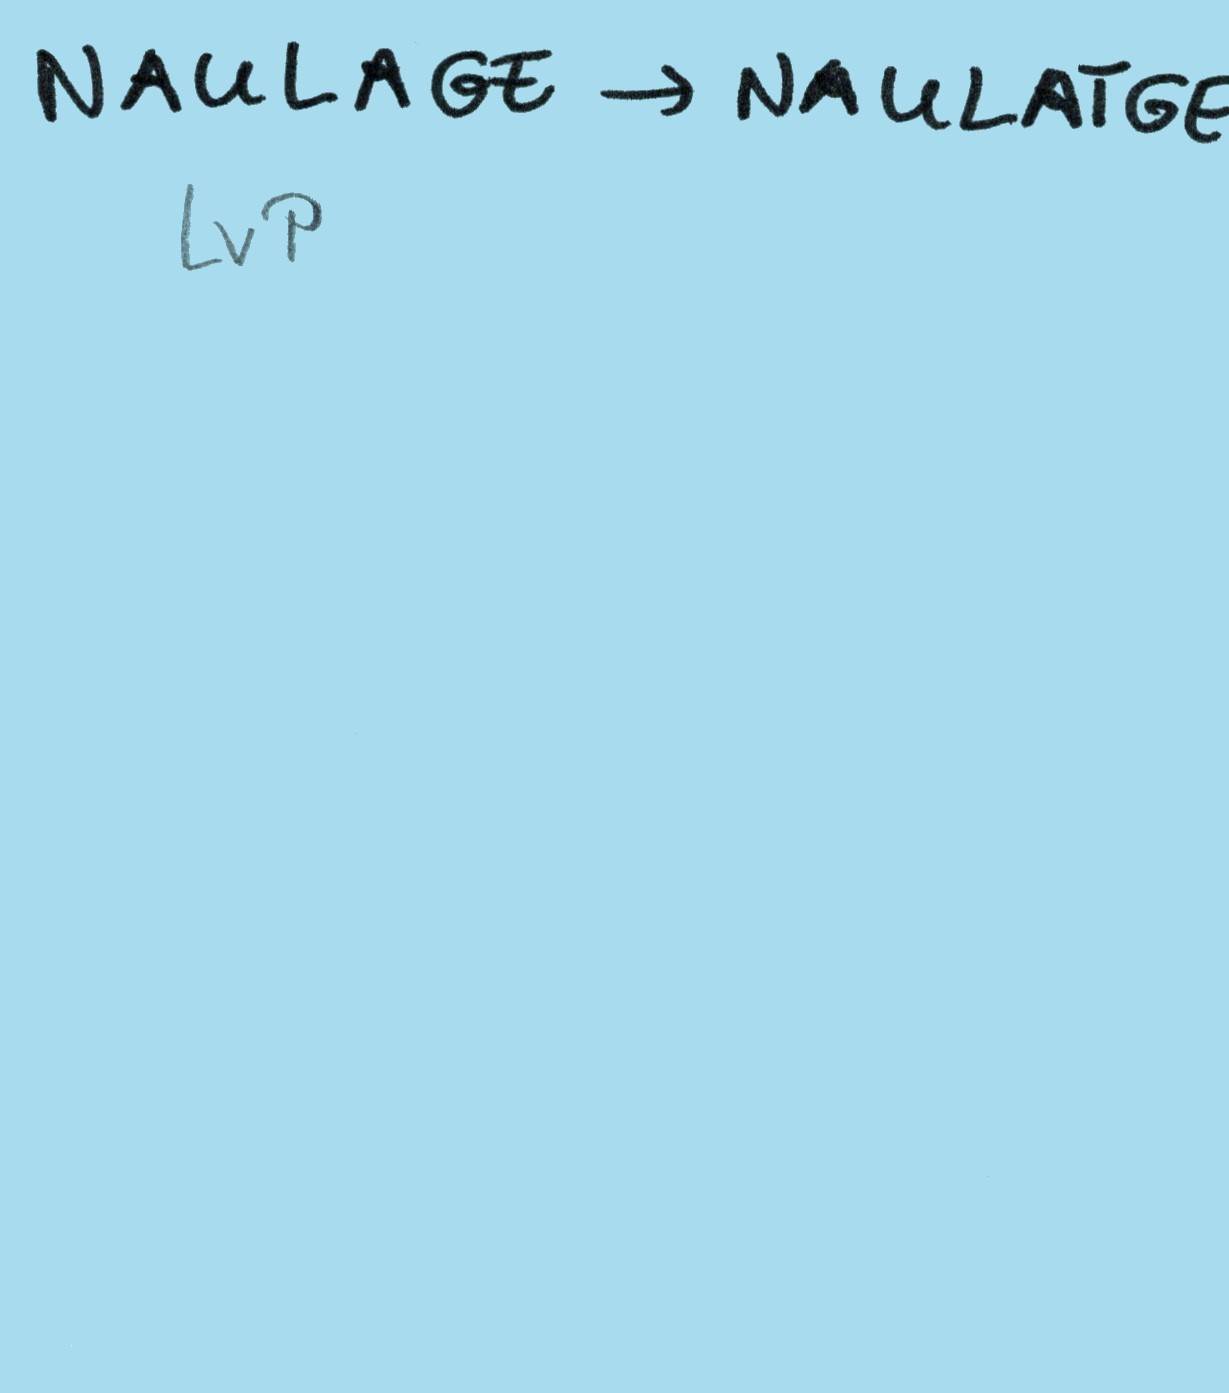 NAULAGE → NAULATGE
LVP